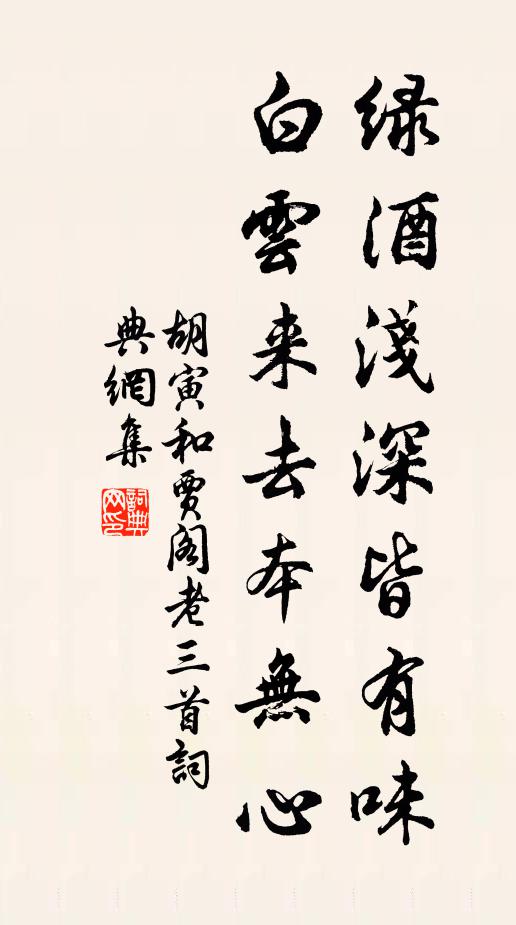 绿酒浅深皆有味
白雲来去本無心
胡寅和賈阁老三首詞
典網集
詞典网印